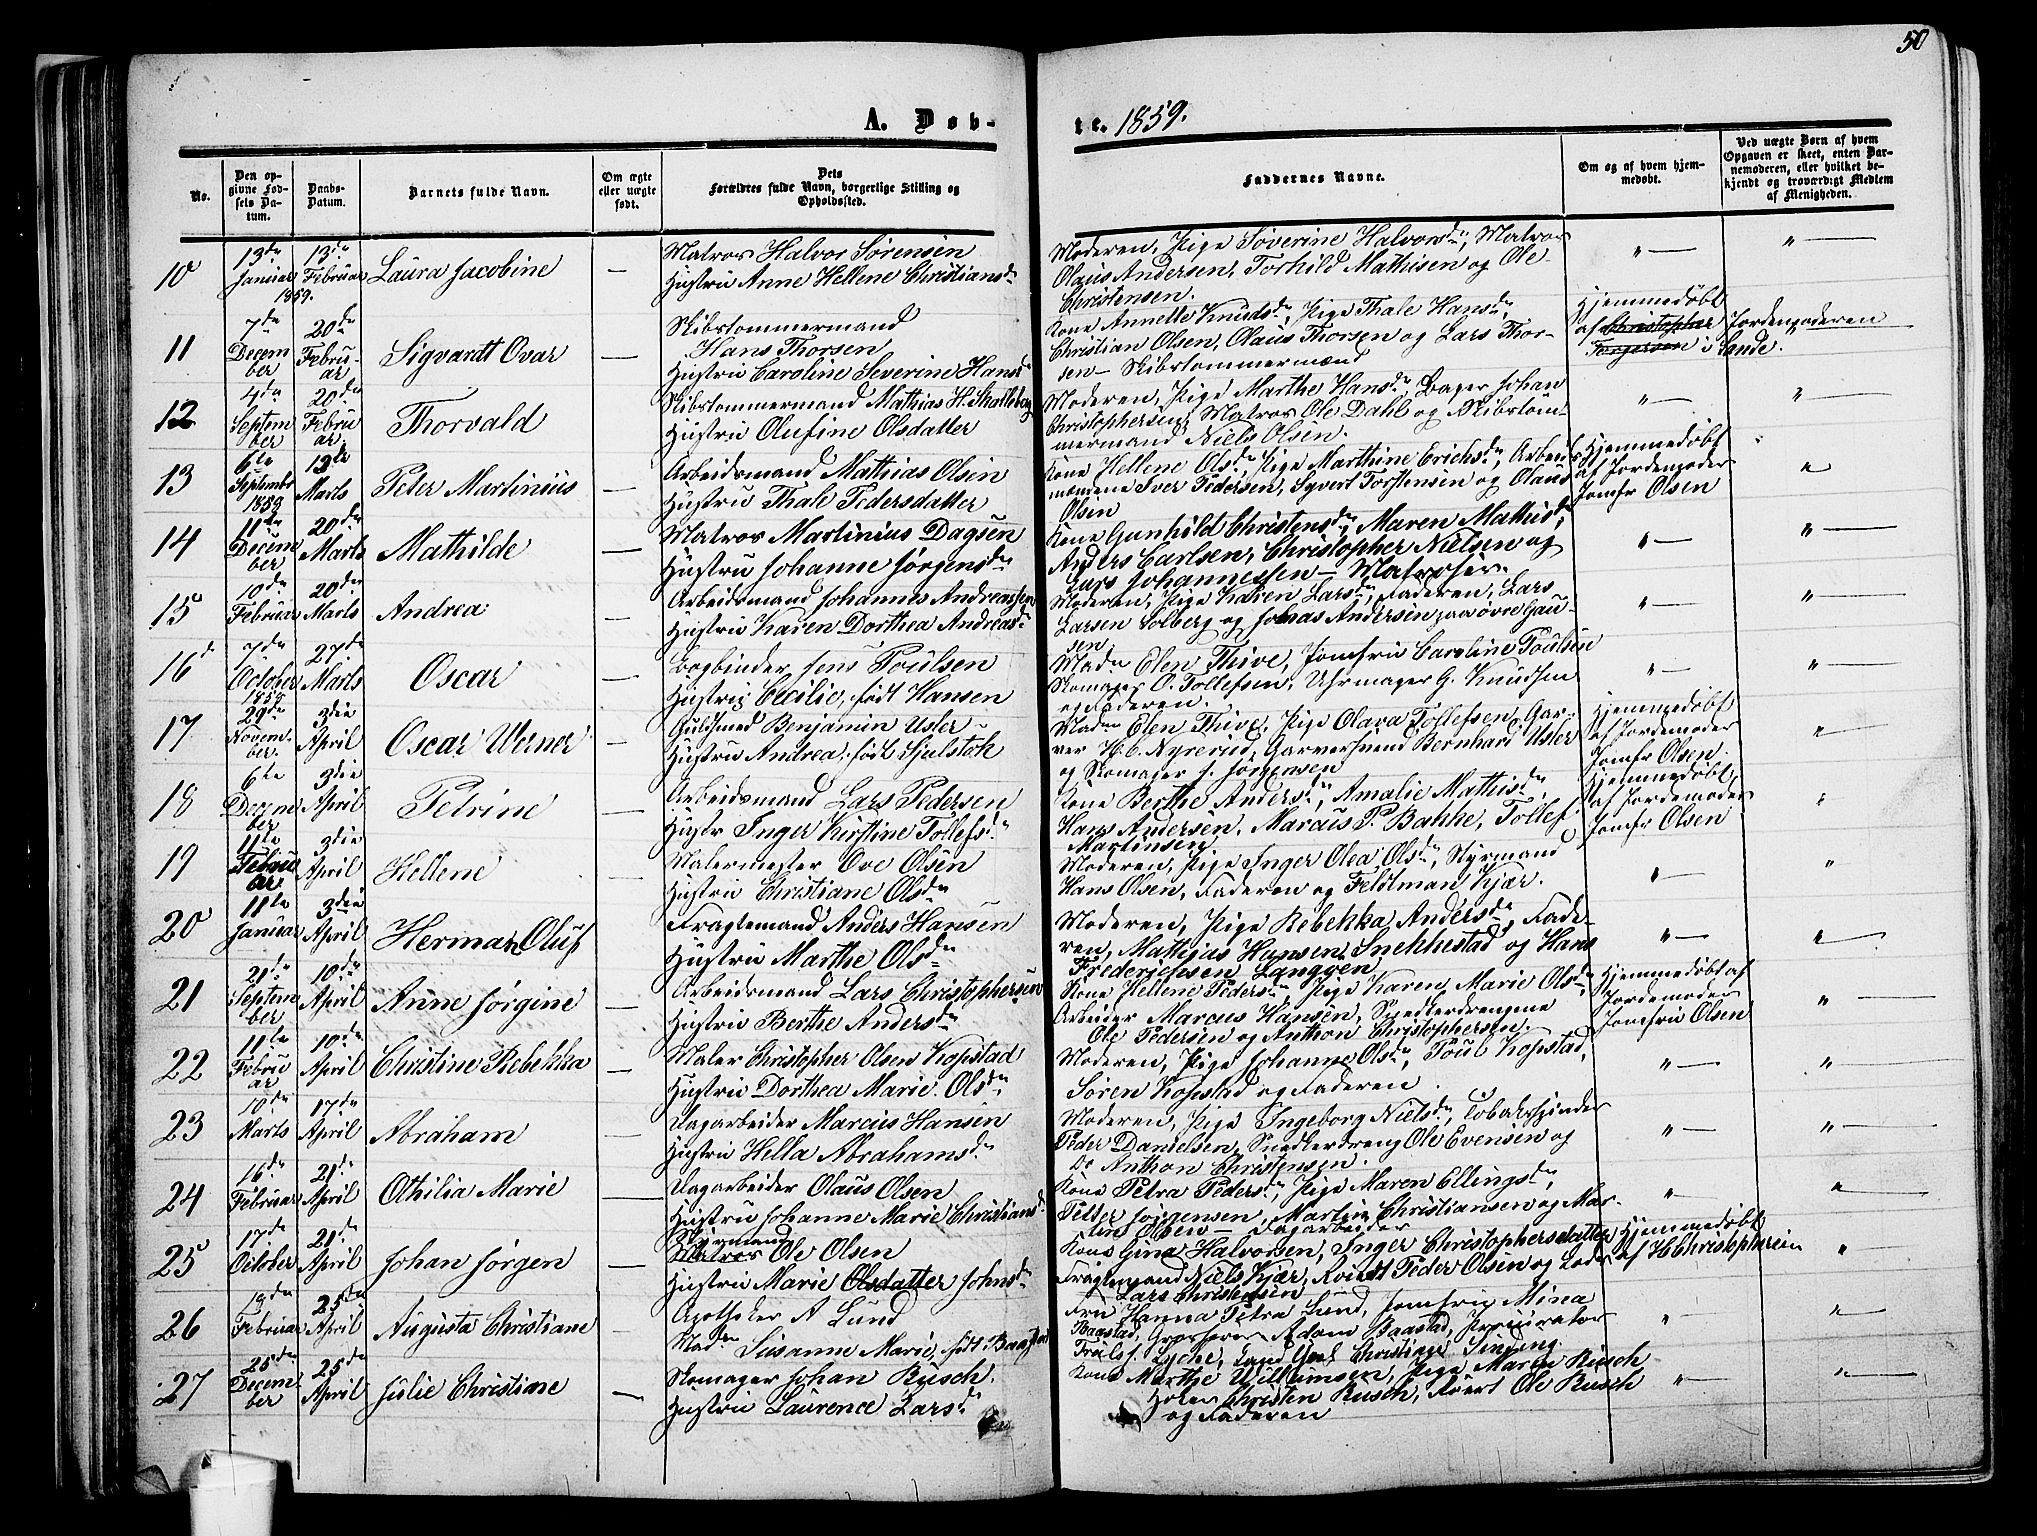 50
A. Døb-
te. 1859.
No.
Den op-
givne Fød-
sels Da-
tum.
Daabs-
Datum.
Barnets fulde Navn.
Om ægte
eller uægte
født.
Dets
Forældres fulde Navn, borgerlige Stilling og
Opholdssted.
Faddernes Navne.
Om og af hvem hjem-
medøbt.
Ved uægte Børn af hvem
Opgaven er skeet, enten Bar-
nemoderen, eller hvilket be-
kjendt og troværdigt Medlem
af Menigheden.
10
13de
Januar
1859.
13de
Februar
Laura Jacobine
—
Matros Halvor Sørensen
Hustru Anne Hellene Christiansdr
Moderen, Pige Søverine Halvorsdr, Matros
Olaus Andersen, Torhild Mathisen og Ole
Christensen.
"—
"—
11
7de
Decem
ber
20de
Febru-
ar
Sigvardt Ovar
—
Skibstømmermand
Hans Thorsen
Hustru Caroline Severine Hansdr
Kone Annette Knudsdr, Pige Thale Hansdr,
Christian Olsen, Olaus Thorsen og Lars Thor-
sen — Skibstømmermænd
Hjemmedøbt
af Christopher
Torgersen i Sande.
Jordemoderen
12
4de
Septem
ber
20de
Febru
ar.
Thorvald
Skibstømmermand Mathias H. Skalleberg
Hustru Olufine Olsdatter
Moderen, Pige Marthe Hansdr, Bager Johan
Christophersen, Matros Ole Dahl og Skibstøm-
mermand Niels Olsen.
"—
"
13
6te
Septembr
1859
13de
Marts
Peter Martinius
Arbeidsmand Mathias Olsen
Hustru Thale Pedersdatter
Kone Hellene Olsdr, Pige Marthine Erichsdr, Arbeids-
mændene Iver Pedersen, Syvert Torstensen og Olaus
Olsen
Hjemmedøbt
af Jordemoder
Jomfr Olsen
"
14
11te
Decem
ber
20de
Marts
Mathilde
—
Matros Martinius Dagsen
Hustru Johanne Jørgensdr
Kone Gunhild Christensdr, Maren Mathisdr,
Anders Carlsen, Christopher Nielsen og
Lars Johannessen — Matroser.
"—
"—
15
10de
Februar
20de
Marts
Andrea
—
Arbeidsmand Johannes Andreassen
Hustru Karen Dorthea Andreasdr
Moderen, Pige Karen Larsdr, Faderen, Lars
Larsen Solberg og Johas Andersen paa øvre Gau-
sen
"—
"—
16
7de
October
1858
27de
Marts
Oscar
Bogbinder Jens Poulsen
Hustru Cecilie, født Hansen
Madm Elen Thive, Jomfru Caroline Poulsen
Skomager O. Tollefsen, Uhrmager G. Knudsen
og Faderen.
"—
"—
17
29de
Novem-
ber.
3die
April
Oscar Werner
—
Guldsmed Benjamin Uster
Hustru Andrea, født Sjulstok
Madm Elen Thive, Pige Olava Tollefsen, Gar-
ver H. C. Nyrerud, Garversvend Bernhard Uster
og Skomager J. Jørgensen
Hjemmedøbt
af Jordemoder
Jomfr Olsen.
"
18
6te
Decem
ber
3die
April
Petrine
—
Arbeidsmand Lars Pedersen
Hustr Inger Kirstine Tollefsdr
Kone Berthe Andersdr, Amalie Mathisdr,
Hans Andersen, Marcus P. Bakke, Tollef
Martinsen
Hjemmedøbt
af Jordemoder
Jomfr Olsen
"
19
11te
Februar
3die
April
Hellene
—
Malermester Ove Olsen
Hustru Christiane Olsdr
Moderen, Pige Inger Olea Olsdr, Styrmand
Hans Olsen, Faderen og Feldtman Kjær.
"—
"
20
11te
Januar
3die
April
Herman Oluf
Fragtemand Anders Hansen
Hustru Marthe Olsdr
Moderen, Pige Rebekka Andersdr, Fade-
ren, Mathias Hansen Snekkestad og Hans
Frederichsen Langgen
"—
"
21
21de
Septem
ber
10de
April
Anne Jørgine
—
Arbeidsmand Lars Christophersen
Hustru Berthe Andersdr
Kone Hellene Pedersdr, Pige Karen Marie Olsdr,
Arbeider Marcus Hansen, Snedkerdrengene
Ole Pedersen og Anthon Christophersen.
Hjemmedøbt af
Jordemoder
Jomfru Olsen
"—
22
11te
Febru
ar
10de
April
Christine Rebekka
—
Maler Christopher Olsen Kopstad
Hustru Dorthea Marie Olsdr
Moderen, Pige Johanne Olsdr, Poul Kopstad,
Søren Kopstad og Faderen.
"—
"
23
10de
Marts
17de
April
Abraham
—
Dagarbeider Marcus Hansen
Hustru Hella Abrahamsdr
Moderen, Pige Ingeborg Nielsdr, Tobakspinder
Peder Danielsen, Snedkerdreng Ole Evensen og
Do Anthon Christensen.
"—
"—
24
16de
Februar
21de
April
Othilia Marie
—
Dagarbeider Olaus Olsen
Hustru Johanne Marie Christiansdr
Kone Petra Pedersdr, Pige Maren Ellingsdr,
Petter Jørgensen, Martin Christiansen og Mar-
tin Olsen — Dagarbeider
"—
"—
25
17de
October
21de
April
Johan Jørgen
—
Styrmand
Matros Ole Olsen
Hustru Marie Olsdatter Johnsdr
Kone Gina Halvorsen, Inger Christophersdatter
Fragtemand Niels Kjær, Peder Olsen og Lods
Lars Christensen
Hjemmedøbt
af H Christophersen
"
26
19de
Februar
25de
April
Augusta Christiane
Apotheker A Lund
Madm Susanne Marie, født Baastad
Fru Hanna Petra Lund, Jomfru Mina
Baastad, Grosserer Adam Baastad, Procurator
Lyche, Christian Sinding
"
"
27
25de
Decem
ber
25de
April
Julie Christiane
—
Skomager Johan Rusch.
Hustru Laurence Larsdr
Kone Marthe Willumsen, Pige Maren Rusch
Christen Rusch, Ole Rusch
og Faderen
"—
"—